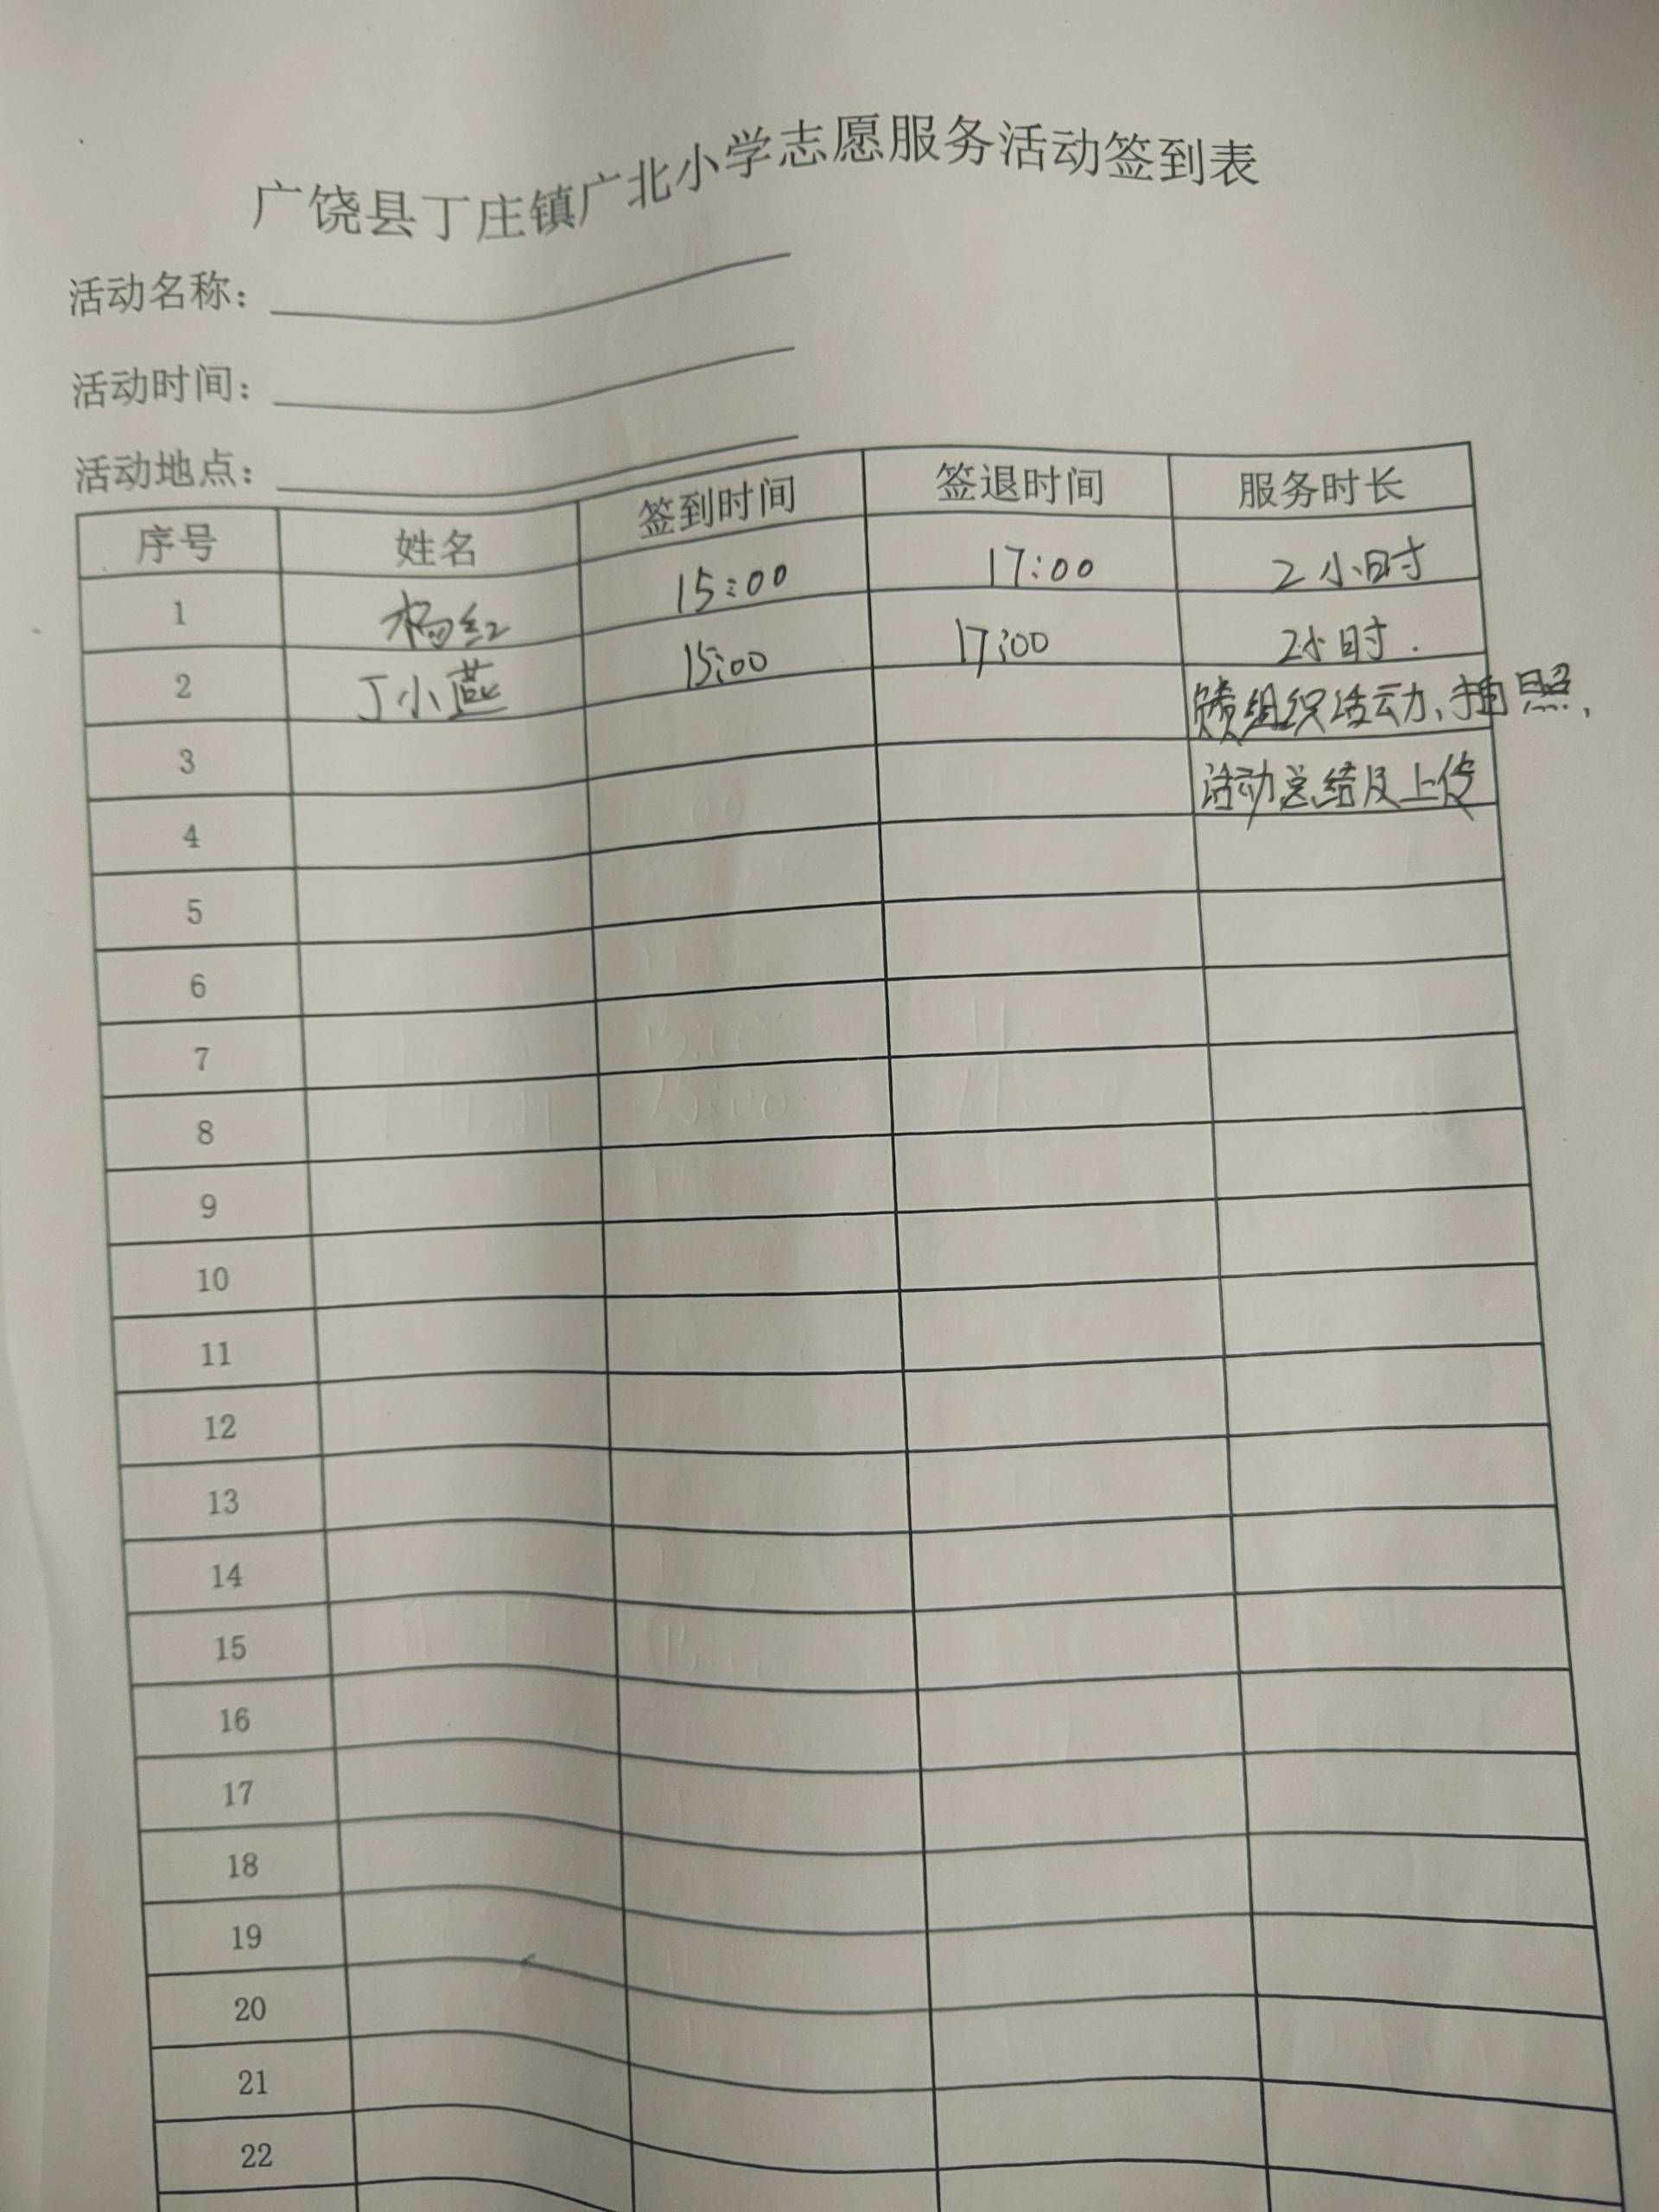 广饶县丁庄镇广北小学志愿服务活动签到表
活动名称：
活动时间：
活动地点：
序号 姓名 签到时间 签退时间 服务时长
1 杨红 15:00 17:00 2小时
2 丁小燕 15:00 17:00 2小时.
3 组织活动、拍照、
4 活动总结及上传
5
6
7
8
9
10
11
12
13
14
15
16
17
18
19
20
21
22